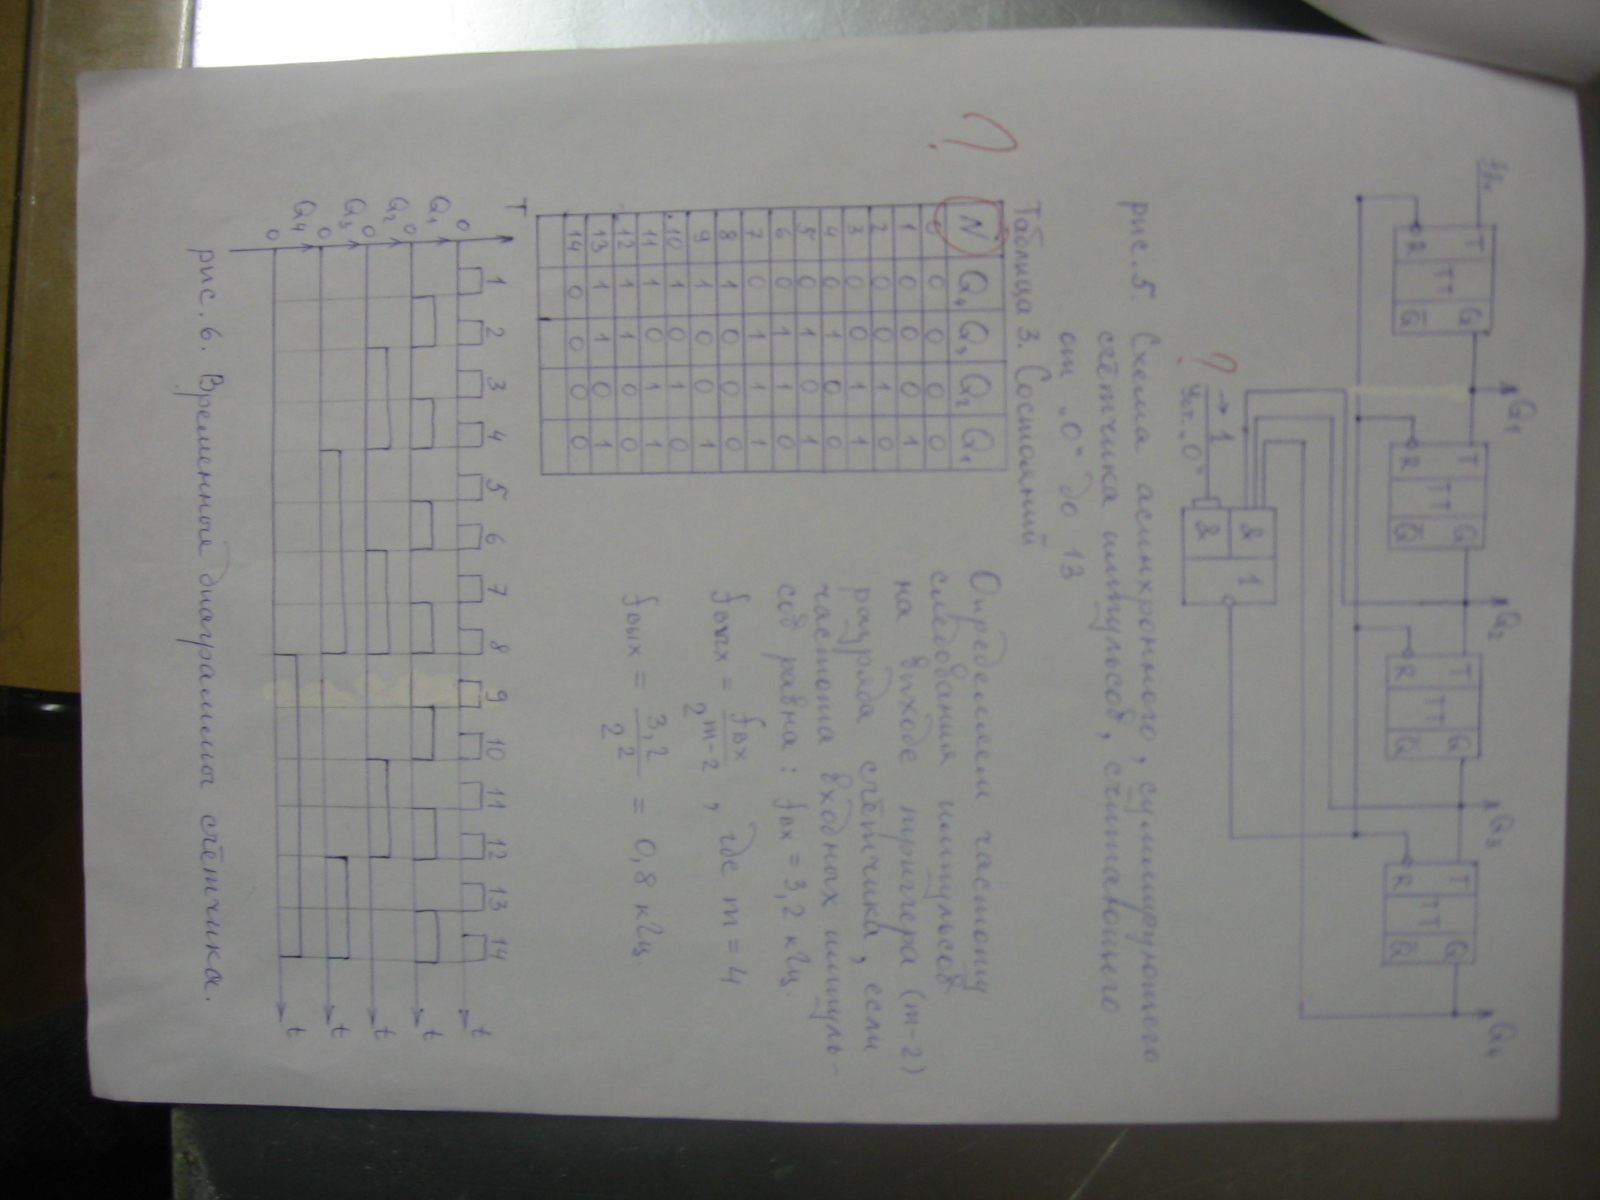 Q1 Q2 Q3 Q4
T TT Q T TT Q T TT Q T TT Q
R Q̅ R Q̅ R Q̅ R Q̅
& 1
&
? → 1
Уст. „0“
рис. 5. Схема асинхронного, суммирующего
счётчика импульсов, считающего
от „0“ до 13
Таблица 3. Состояний
?
N Q₄ Q₃ Q₂ Q₁
0 0 0 0 0
1 0 0 0 1
2 0 0 1 0
3 0 0 1 1
4 0 1 0 0
5 0 1 0 1
6 0 1 1 0
7 0 1 1 1
8 1 0 0 0
9 1 0 0 1
10 1 0 1 0
11 1 0 1 1
12 1 1 0 0
13 1 1 0 1
14 0 0 0 0
Определяем частоту
следования импульсов
на выходе триггера (m-2)
разряда счётчика, если
частота входных импуль-
сов равна: fвх = 3,2 кГц.
fвых = fвх / 2^(m-2), где m = 4
fвых = 3,2 / 2² = 0,8 кГц.
T 1 2 3 4 5 6 7 8 9 10 11 12 13 14
0 t
Q₁ 0 t
Q₂ 0 t
Q₃ 0 t
Q₄ 0 t
рис. 6. Временные диаграммы счётчика.